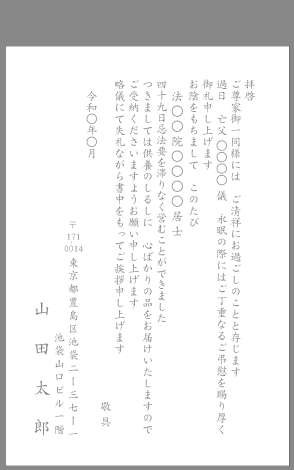 拝啓
ご尊家御一同様には　ご清祥にお過ごしのことと存じます
過日　亡父 〇〇〇〇 儀　永眠の際にはご丁重なるご弔慰を賜り厚く
御礼申し上げます
お陰をもちまして　このたび
法〇〇院〇〇〇〇居士
四十九日忌法要を滞りなく営むことができました
つきましては供養のしるしに　心ばかりの品をお届けいたしますので
ご受納くださいますようお願い申し上げます
略儀にて失礼ながら書中をもってご挨拶申し上げます
敬具
令和〇年〇月
〒171-0014 東京都豊島区池袋二ー三七ー一
池袋山口ビル一階
山田太郎